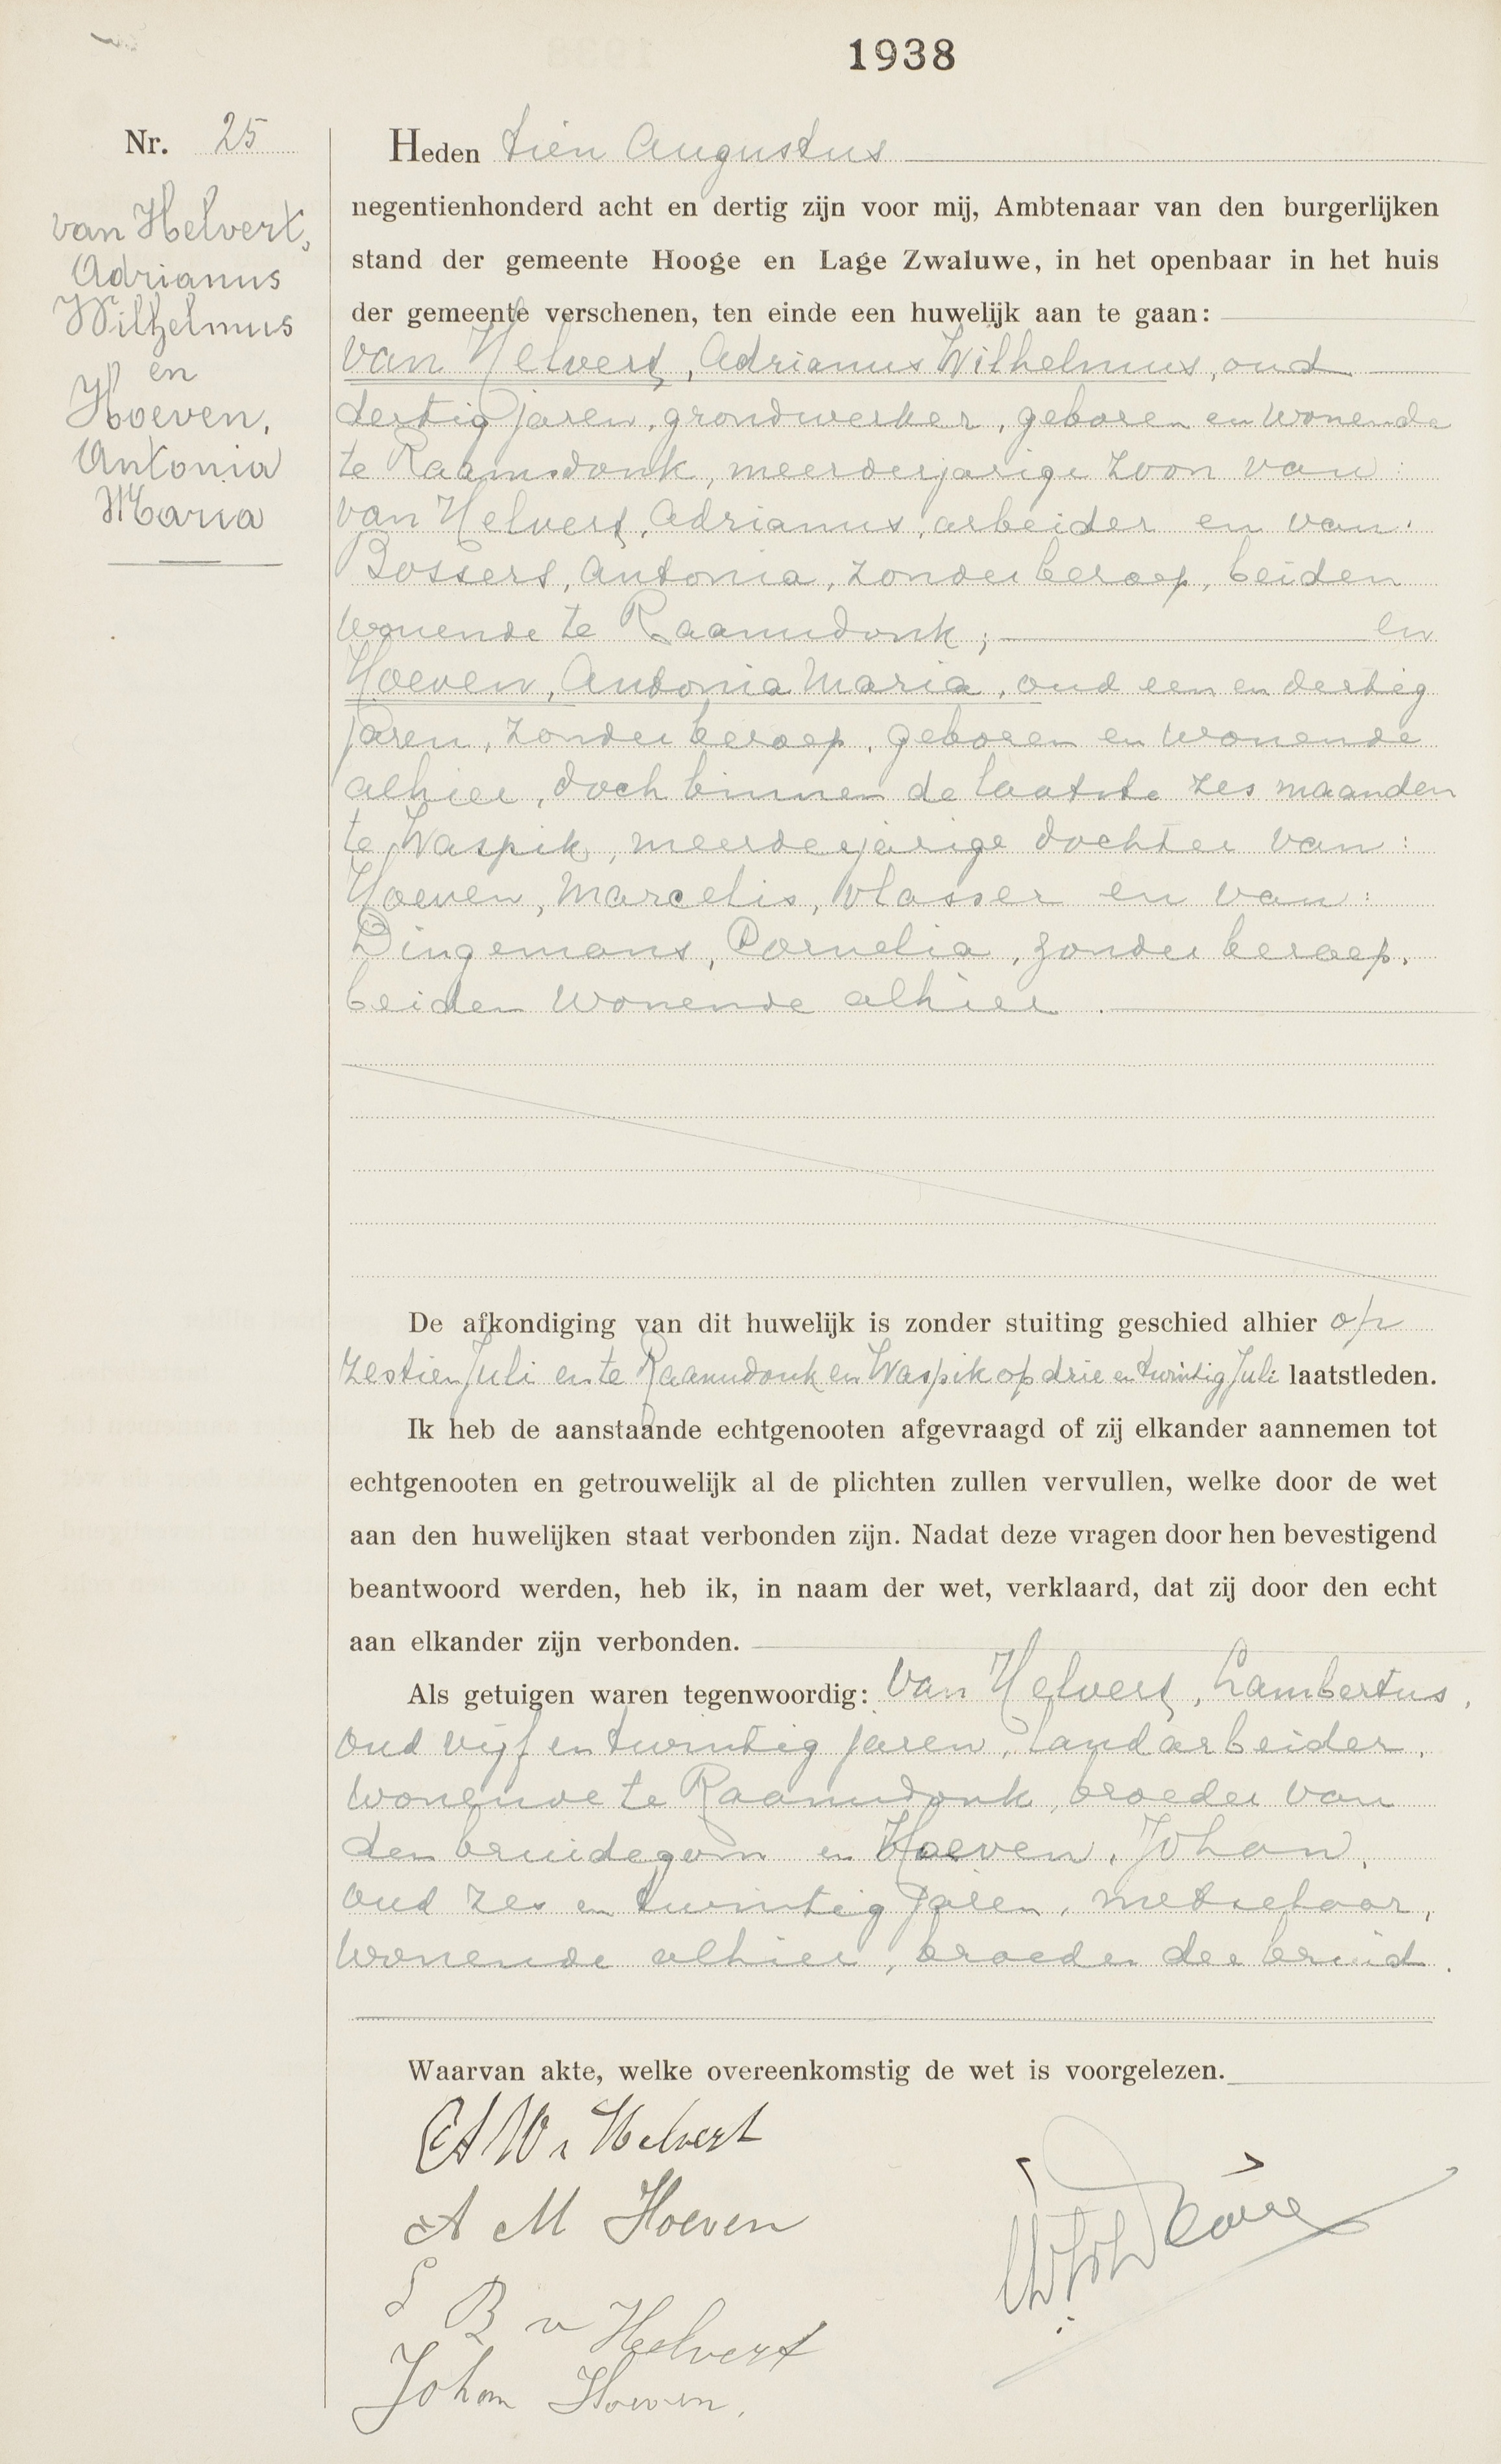 1938
Nr. 25
van Helvert,
Adrianus
Wilhelmus
en
Hoeven,
Antonia
Maria
Heden tien Augustus
negentienhonderd acht en dertig zijn voor mij, Ambtenaar van den burgerlijken
stand der gemeente Hooge en Lage Zwaluwe, in het openbaar in het huis
der gemeente verschenen, ten einde een huwelijk aan te gaan:
van Helvert, Adrianus Wilhelmus, oud
dertig jaren, grondwerker, geboren en wonende
te Raamsdonk, meerderjarige zoon van:
van Helvert, Adrianus, arbeider en van:
Bossers, Antonia, zonder beroep, beiden
wonende te Raamsdonk; en
Hoeven, Antonia Maria, oud een en dertig
jaren, zonder beroep, geboren en wonende
alhier, doch binnen de laatste zes maanden
te Waspik, meerderjarige dochter van:
Hoeven, Marcelis, vlasser en van:
Dingemans, Cornelia, zonder beroep,
beiden wonende alhier.
De afkondiging van dit huwelijk is zonder stuiting geschied alhier op
zestien Juli en te Raamsdonk en Waspik op drie en twintig Juli laatstleden.
Ik heb de aanstaande echtgenooten afgevraagd of zij elkander aannemen tot
echtgenooten en getrouwelijk al de plichten zullen vervullen, welke door de wet
aan den huwelijken staat verbonden zijn. Nadat deze vragen door hen bevestigend
beantwoord werden, heb ik, in naam der wet, verklaard, dat zij door den echt
aan elkander zijn verbonden.
Als getuigen waren tegenwoordig: van Helvert, Lambertus,
oud vijf en twintig jaren, landarbeider,
wonende te Raamsdonk, broeder van
den bruidegom en Hoeven, Johan,
oud zes en twintig jaren, metselaar,
wonende alhier, broeder der bruid.
Waarvan akte, welke overeenkomstig de wet is voorgelezen.
A W v Helvert
A M Hoeven
L B v Helvert
Johan Hoeven.